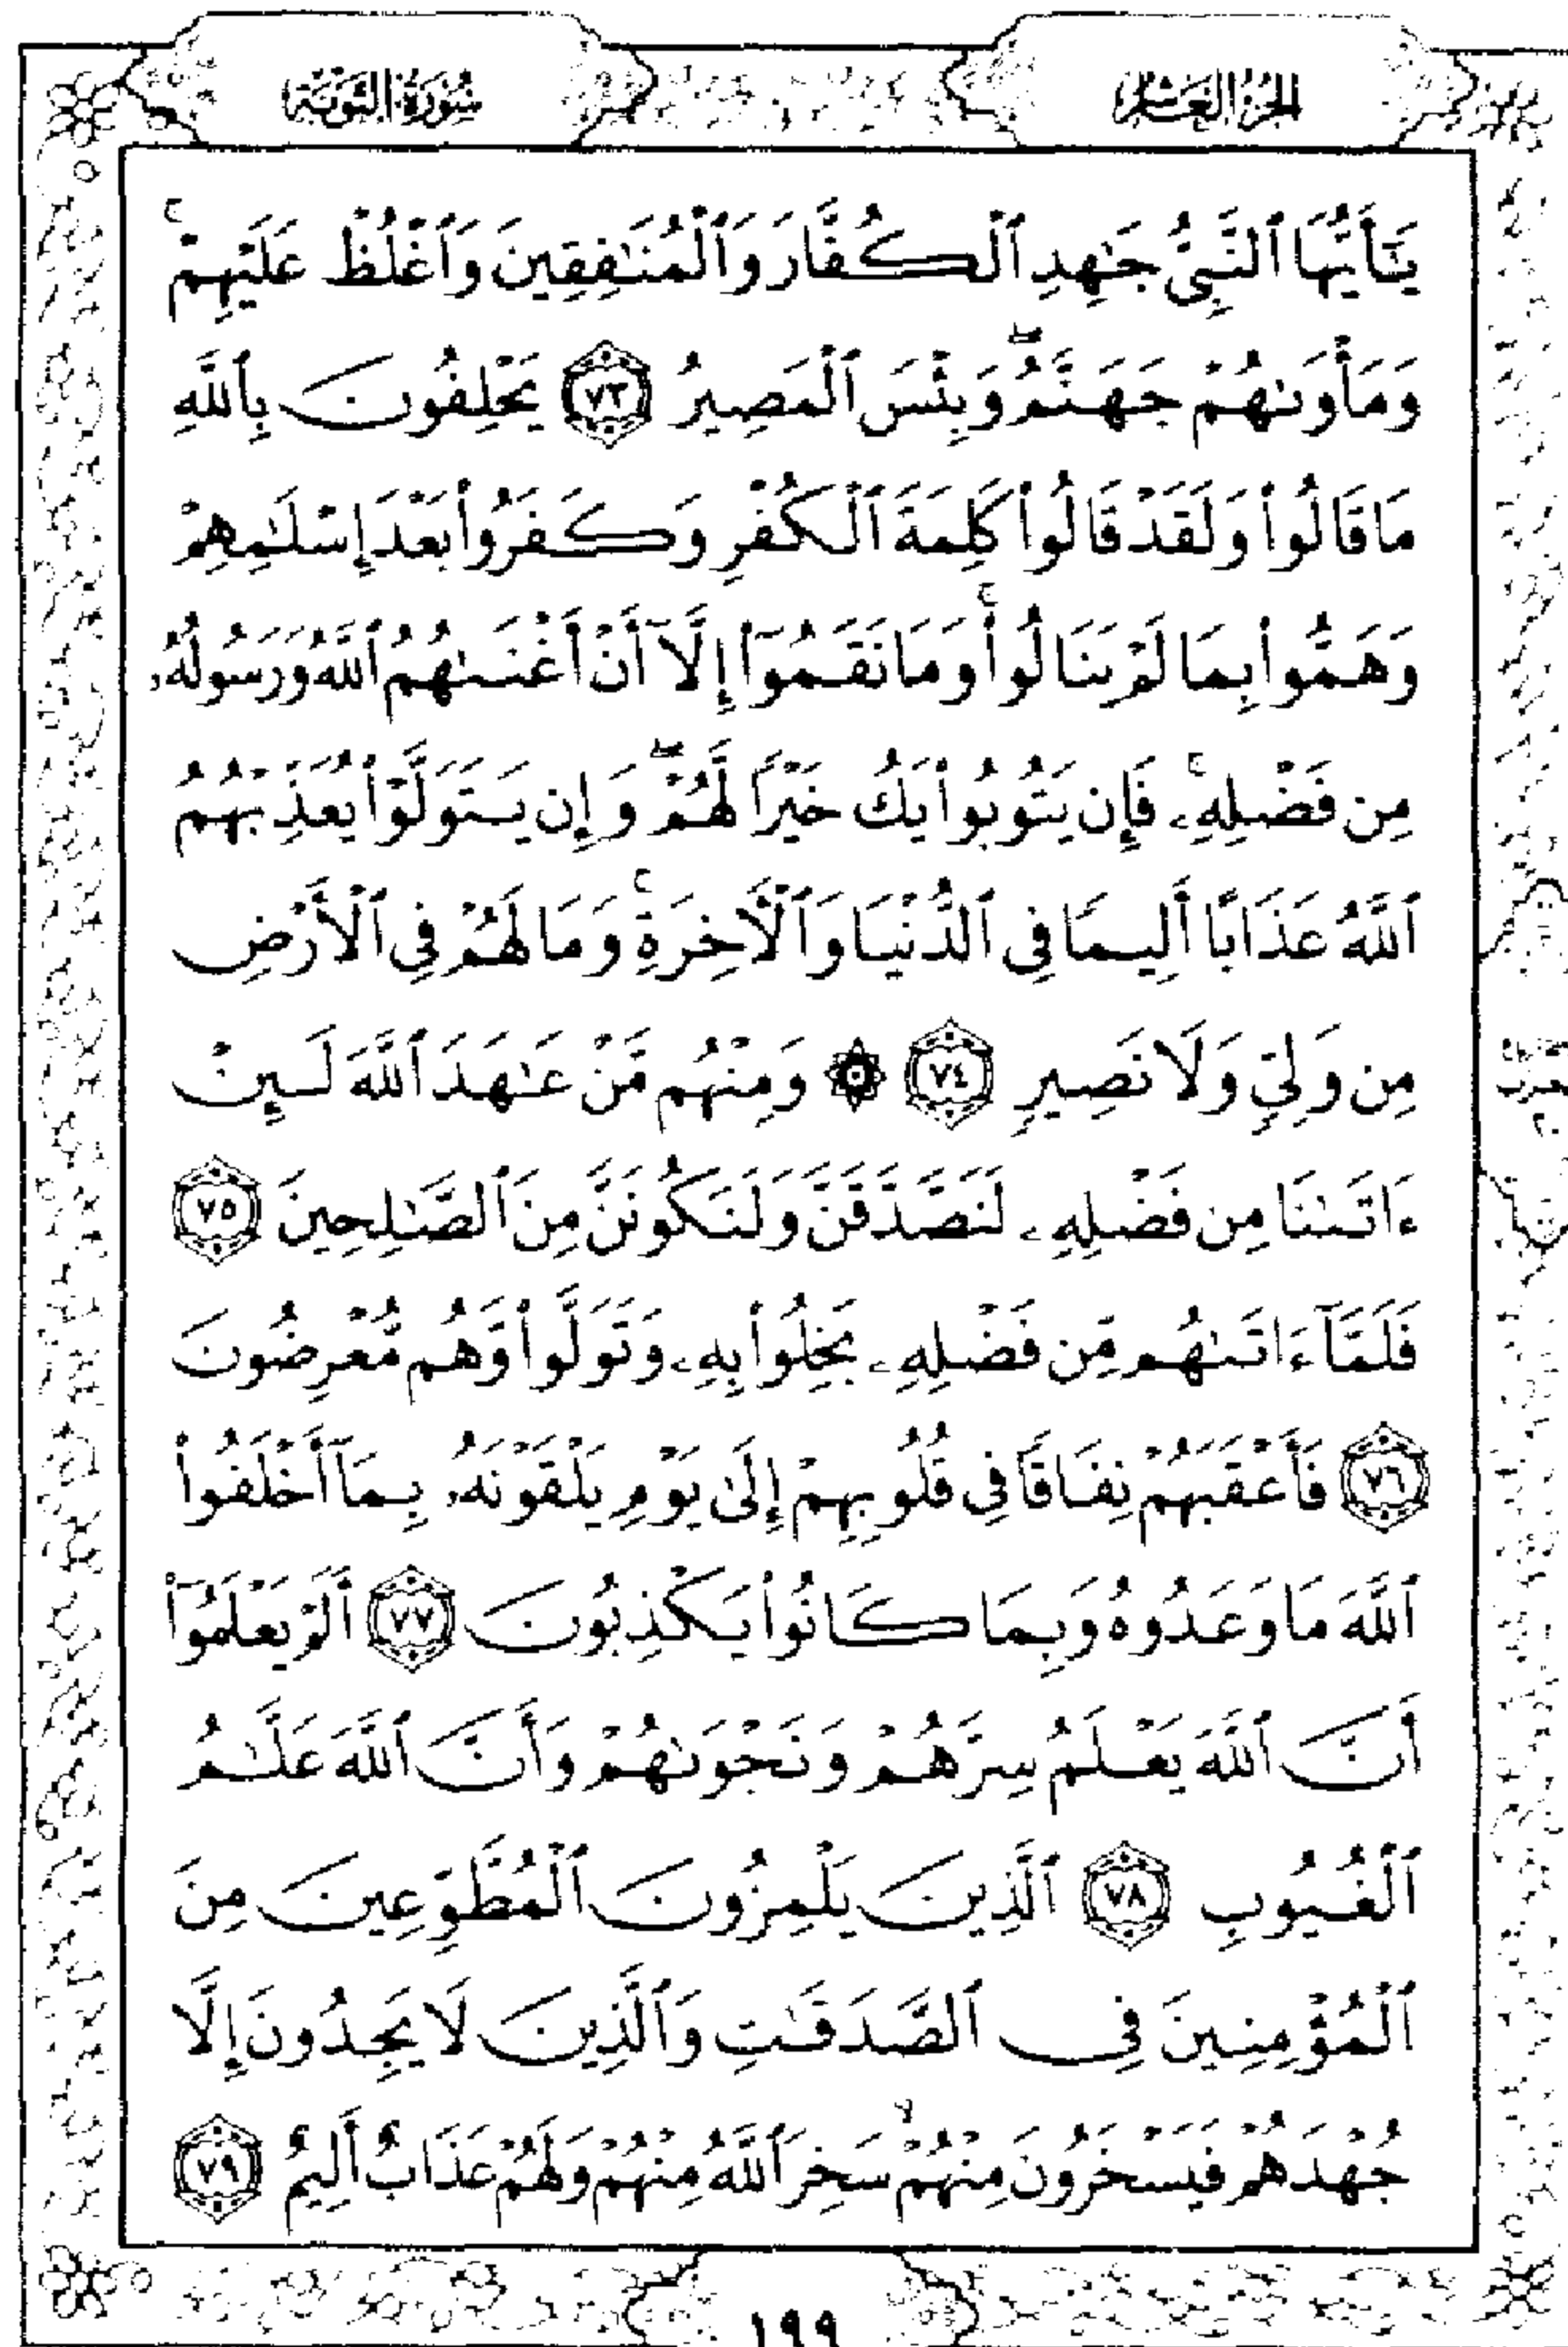 الجزء العاشر
سورة التوبة
يَٰٓأَيُّهَا ٱلنَّبِىُّ جَٰهِدِ ٱلْكُفَّارَ وَٱلْمُنَٰفِقِينَ وَٱغْلُظْ عَلَيْهِمْ ۚ
وَمَأْوَىٰهُمْ جَهَنَّمُ ۖ وَبِئْسَ ٱلْمَصِيرُ ٧٣ يَحْلِفُونَ بِٱللَّهِ
مَا قَالُوا۟ وَلَقَدْ قَالُوا۟ كَلِمَةَ ٱلْكُفْرِ وَكَفَرُوا۟ بَعْدَ إِسْلَٰمِهِمْ
وَهَمُّوا۟ بِمَا لَمْ يَنَالُوا۟ ۚ وَمَا نَقَمُوٓا۟ إِلَّآ أَنْ أَغْنَىٰهُمُ ٱللَّهُ وَرَسُولُهُۥ
مِن فَضْلِهِۦ ۚ فَإِن يَتُوبُوا۟ يَكُ خَيْرًا لَّهُمْ ۖ وَإِن يَتَوَلَّوْا۟ يُعَذِّبْهُمُ
ٱللَّهُ عَذَابًا أَلِيمًا فِى ٱلدُّنْيَا وَٱلْءَاخِرَةِ ۚ وَمَا لَهُمْ فِى ٱلْأَرْضِ
مِن وَلِىٍّ وَلَا نَصِيرٍ ٧٤ ۞ وَمِنْهُم مَّنْ عَٰهَدَ ٱللَّهَ لَئِنْ
ءَاتَىٰنَا مِن فَضْلِهِۦ لَنَصَّدَّقَنَّ وَلَنَكُونَنَّ مِنَ ٱلصَّٰلِحِينَ ٧٥
فَلَمَّآ ءَاتَىٰهُم مِّن فَضْلِهِۦ بَخِلُوا۟ بِهِۦ وَتَوَلَّوا۟ وَّهُم مُّعْرِضُونَ
٧٦ فَأَعْقَبَهُمْ نِفَاقًا فِى قُلُوبِهِمْ إِلَىٰ يَوْمِ يَلْقَوْنَهُۥ بِمَآ أَخْلَفُوا۟
ٱللَّهَ مَا وَعَدُوهُ وَبِمَا كَانُوا۟ يَكْذِبُونَ ٧٧ أَلَمْ يَعْلَمُوٓا۟
أَنَّ ٱللَّهَ يَعْلَمُ سِرَّهُمْ وَنَجْوَىٰهُمْ وَأَنَّ ٱللَّهَ عَلَّٰمُ
ٱلْغُيُوبِ ٧٨ ٱلَّذِينَ يَلْمِزُونَ ٱلْمُطَّوِّعِينَ مِنَ
ٱلْمُؤْمِنِينَ فِى ٱلصَّدَقَٰتِ وَٱلَّذِينَ لَا يَجِدُونَ إِلَّا
جُهْدَهُمْ فَيَسْخَرُونَ مِنْهُمْ ۙ سَخِرَ ٱللَّهُ مِنْهُمْ وَلَهُمْ عَذَابٌ أَلِيمٌ ٧٩
١٩٩